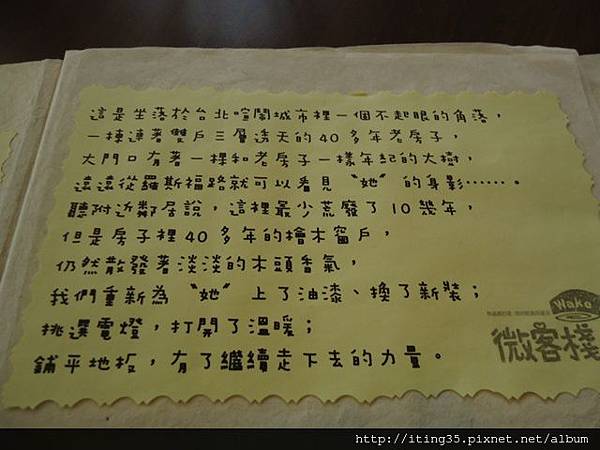 這是坐落於台北喧鬧城市裡一個不起眼的角落，
一棟連著雙戶三層透天的40多年老房子，
大門口有著一棵和老房子一樣年紀的大樹，
遠遠從羅斯福路就可以看見〝她〞的身影……。
聽附近鄰居說，這裡最少荒廢了10幾年，
但是房子裡40多年的檜木窗戶，
仍然散發著淡淡的木頭香氣，
我們重新為〝她〞上了油漆、換了新裝；
挑選電燈，打開了溫暖；
鋪平地板，有了繼續走下去的力量。
Wake
微客棧
http://iting35.pixnet.net/album